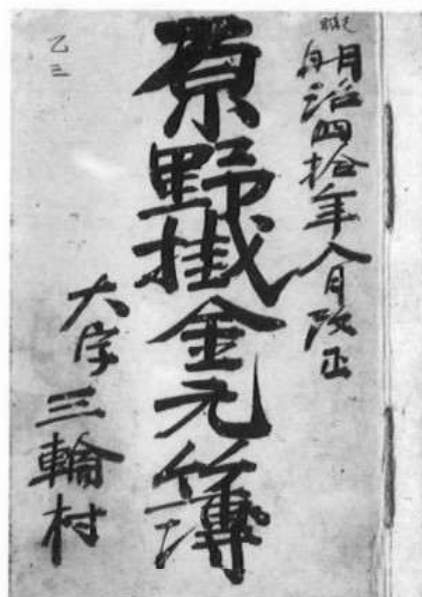 明治四拾年八月改正
原野掛金元簿
大字三輪村
乙三